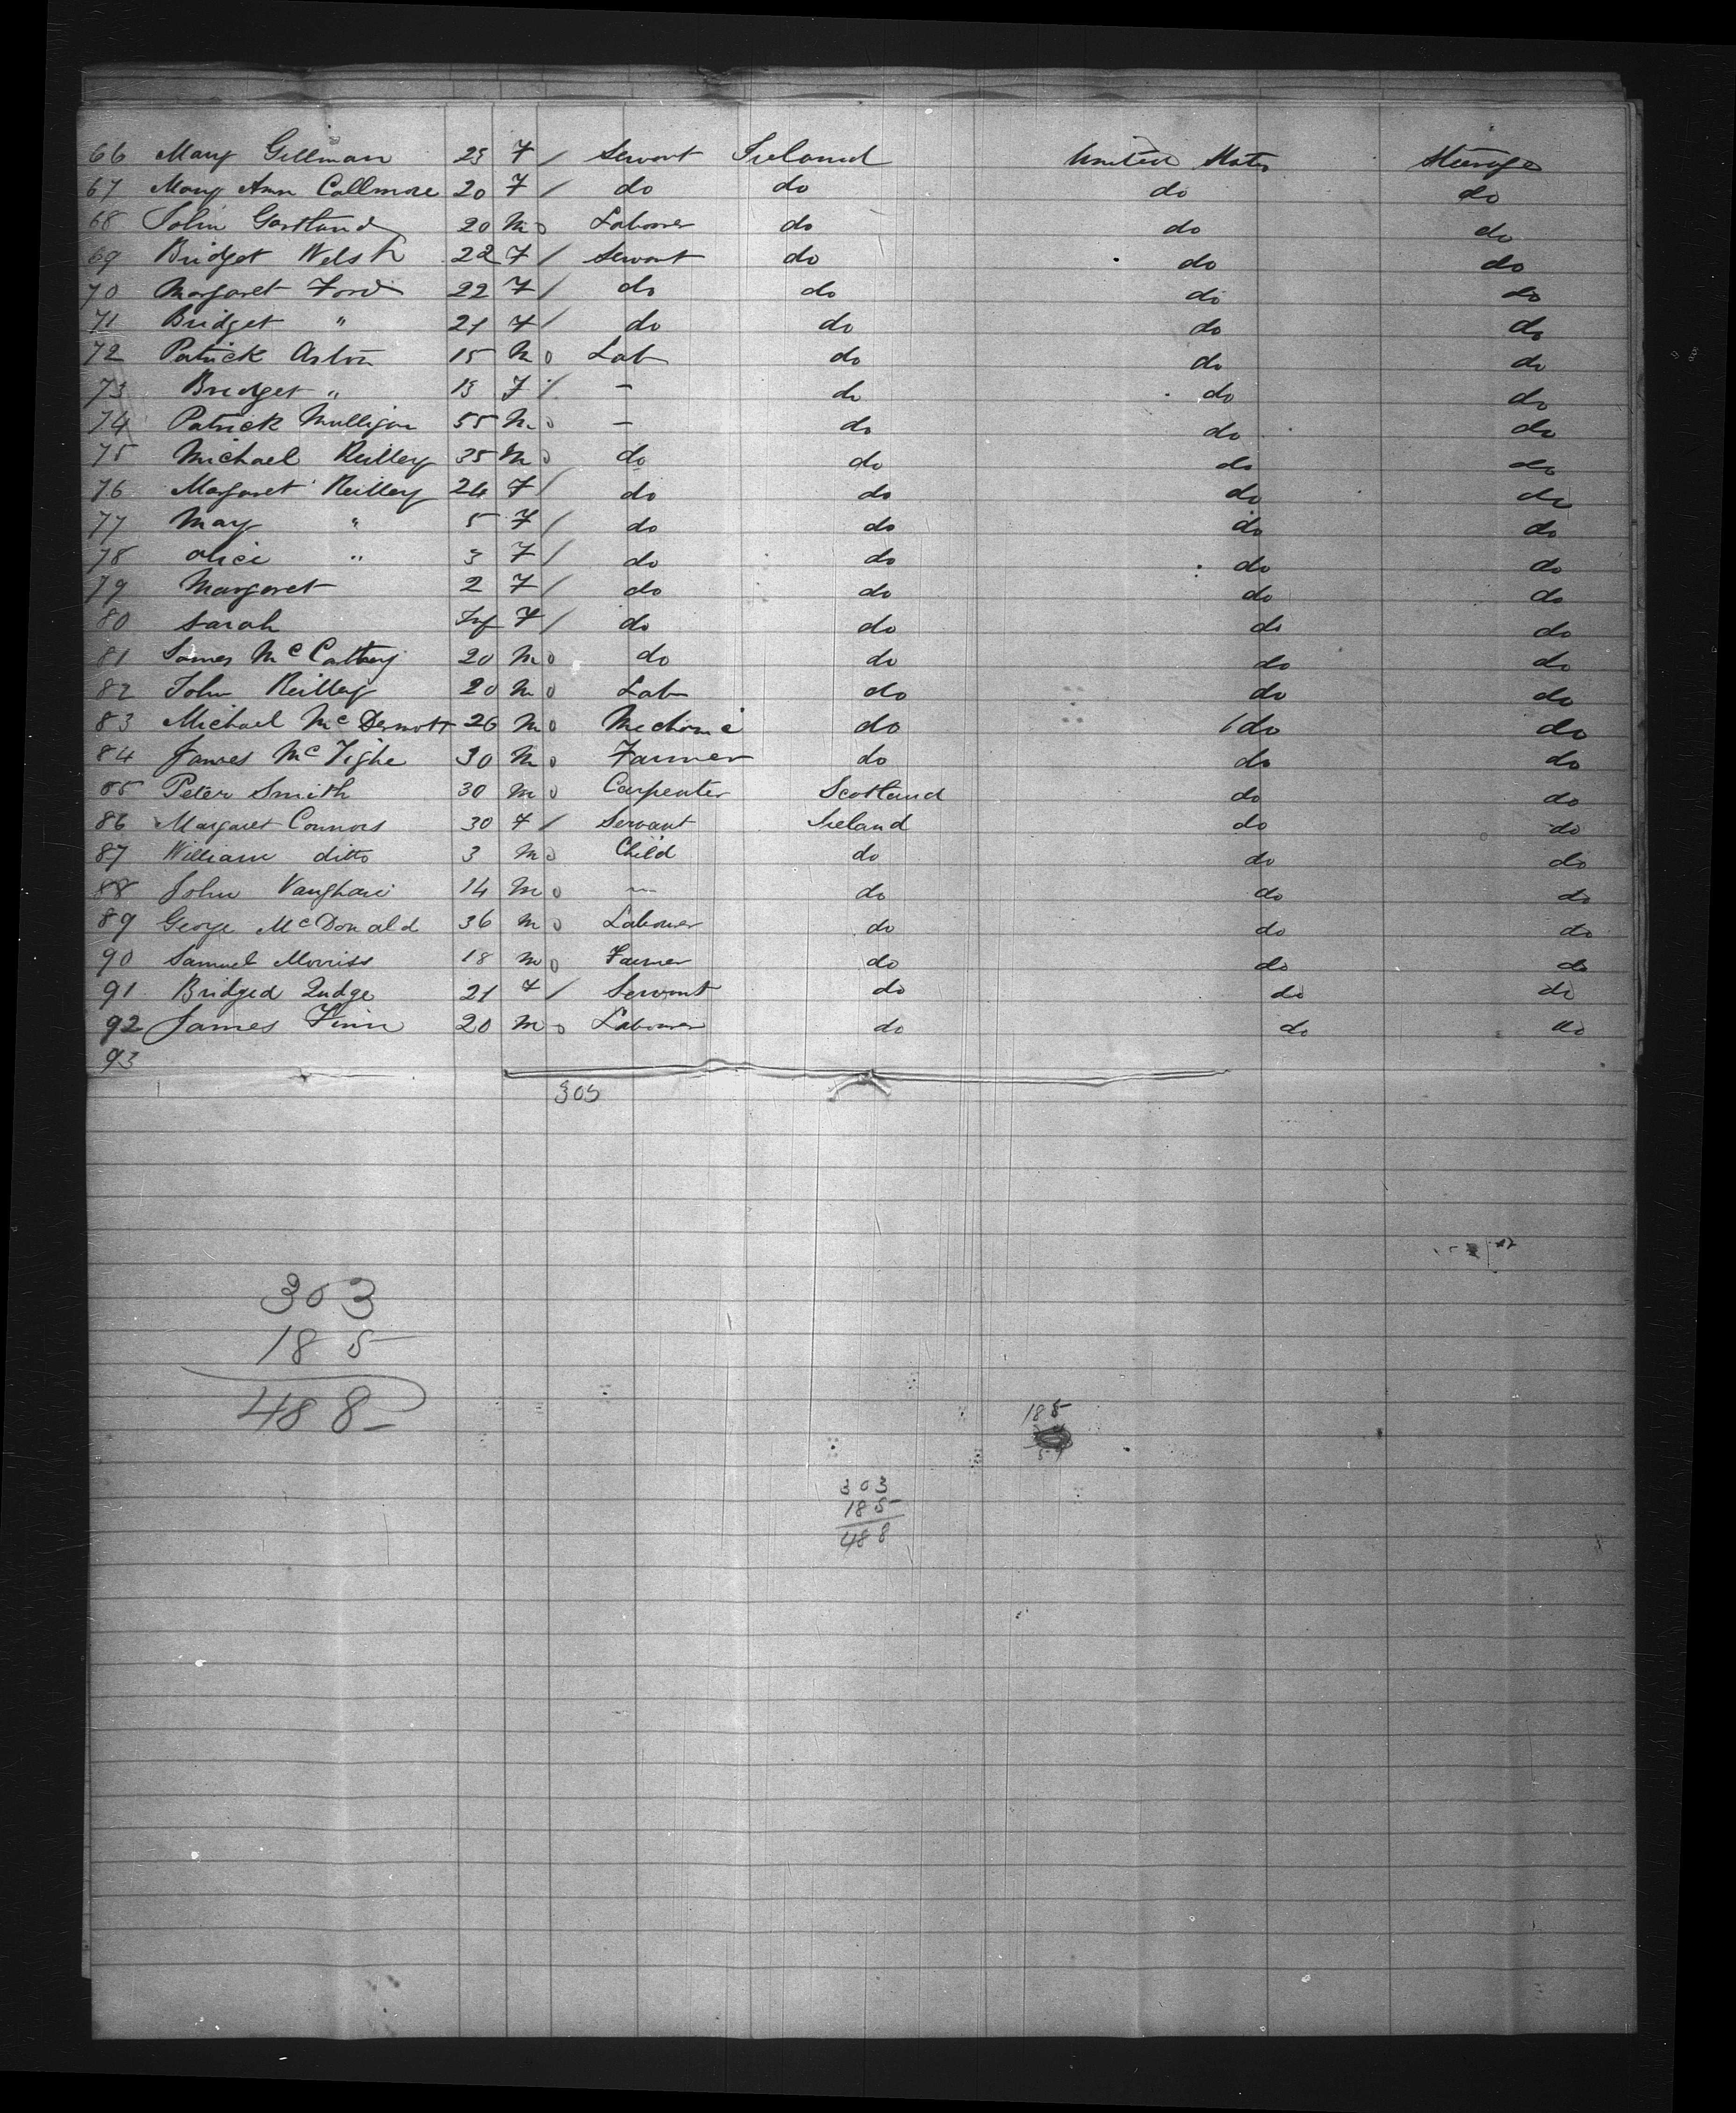 66 Mary Gillman 23 F / Servant Ireland United States Steerage
67 Mary Ann Callmore 20 F / do do do do
68 John Gartland 20 M o Labourer do do do
69 Bridget Welsh 22 F / Servant do do do
70 Margaret Ford 22 F / do do do do
71 Bridget " 21 F / do do do do
72 Patrick Aston 15 M o Lab do do do
73 Bridget " 13 F / - do do do
74 Patrick Mulligan 55 M o - do do do
75 Michael Reilley 35 M o do do do do
76 Margaret Reilley 24 F / do do do do
77 Mary " 5 F / do do do do
78 Alice " 3 F / do do do do
79 Margaret 2 F / do do do do
80 Sarah Inf F / do do do do
81 James McCathey 20 M o do do do do
82 John Reilley 20 M o Lab do do do
83 Michael McDermott 26 M o Mechanic do do do
84 James McTighe 30 M o Farmer do do do
85 Peter Smith 30 M o Carpenter Scotland do do
86 Margaret Connors 30 F / Servant Ireland do do
87 William ditto 3 M o Child do do do
88 John Vaughan 14 M o - do do do
89 George McDonald 36 M o Labourer do do do
90 Samuel Morriss 18 M o Farmer do do do
91 Bridged Judge 21 F / Servant do do do
92 James Finn 20 M o Labourer do do do
93
303
303
185
488
185
303
185
488